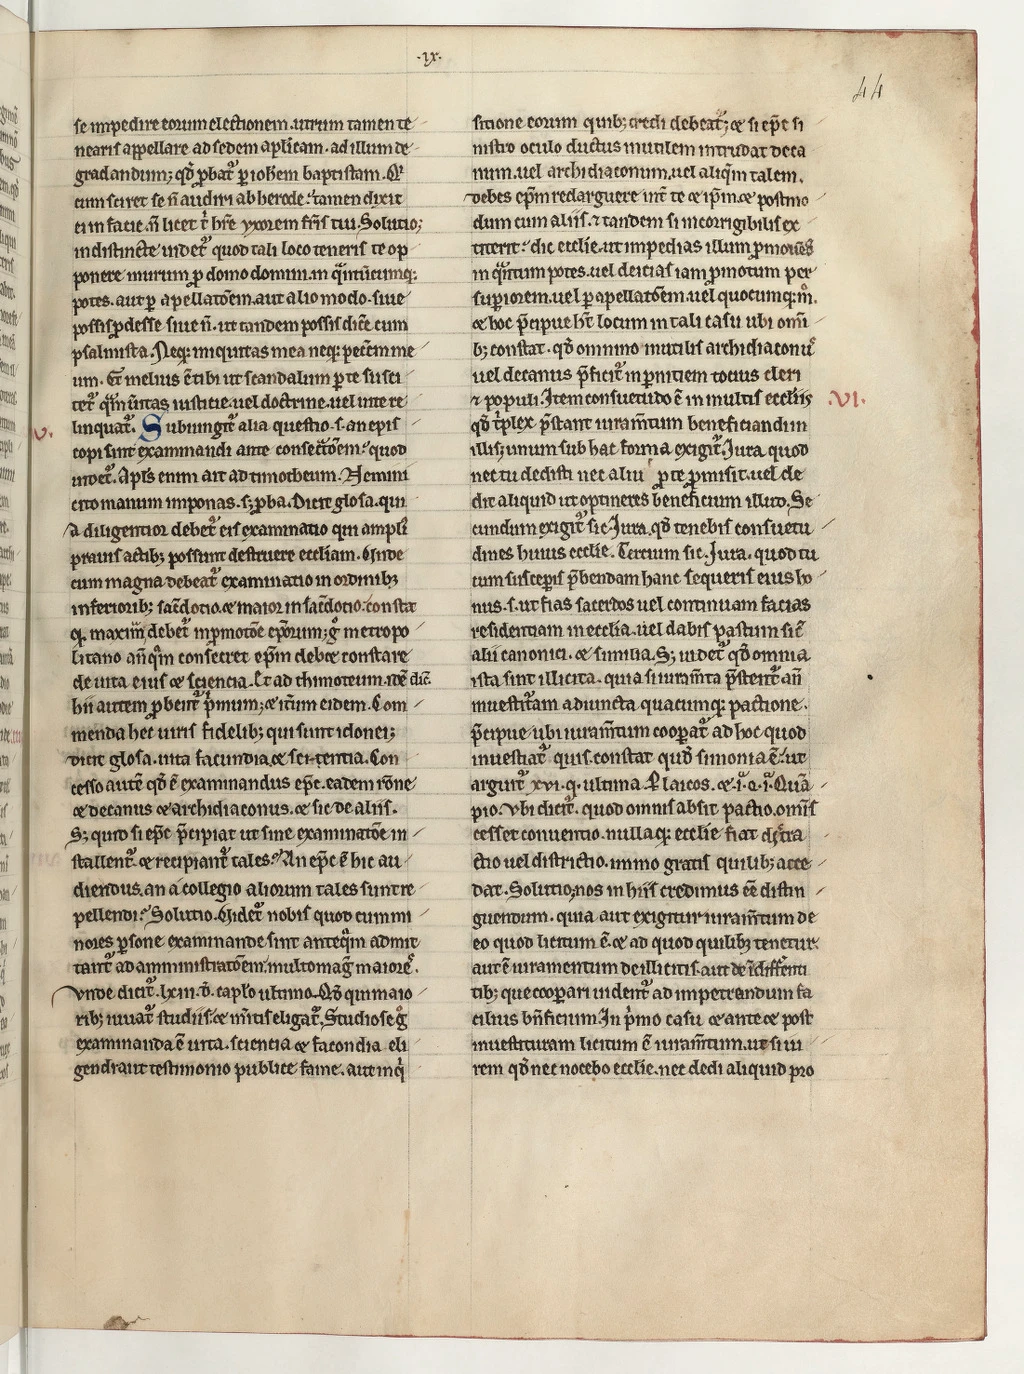 ·ix·
44
se impedire eorum electionem. utrum tamen te
nearis appellare ad sedem aplicam. ad illum de
gradandum; qd probat' p iohem baptistam. Q'
cum sciret se n audiri ab herode: tamen dixit
ei in facie. n licet t' hre uxorem fris tui. Solutio;
indistincte uidet' quod tali loco teneris te op
ponere murum p domo domini. in q'ntucumq;
potes. aut p apellatoem. aut alio modo. siue
possis pdesse siue n. ut tandem possis dice cum
psalmista. Neq; iniquitas mea neq; pctm me
um. Et melius e tibi ut scandalum p te susci
tet' qm ueritas iusticie. uel doctrine. uel uite re
v.
linquat'. Subiungit' alia questio. s. an epis
copi sint examinandi ante consecroem: quod
uidet'. Apls enim ait ad timotheum. Nemini
cito manum imponas. s; pba. Dicit glosa. qui
a diligentior debet' eis examinatio qui ampli
prauis actib; possunt destruere eccliam. Unde
cum magna debeat' examinatio in ordinib;
inferiorib; sacdotio. & maior in sacdotio. constat
q. maxim debet' in pmotoe eporum; g' metropo
litano anq'm consecret epm debet constare
de uita eius & sciencia. Et ad thimoteum. ite dic
hii autem probent' p'mum; & itum eidem. Com
menda hec uiris fidelib; qui sunt idonei;
dicit glosa. uita facundia. & scientia. Con
cesso aute qd e examinandus epc. eadem rone
& decanus & archidiaconus. & sic de aliis.
S; quid si epc p'cipiat ut sine examinatoe in
stallent'. & recipiant' tales? An epc e hic au
diendus. an a collegio aliorum tales sunt re
pellendi? Solutio. Uidet' nobis quod cum mi
nores psone examinande sint anteq'm admit
tant' ad amministratoem. multo mag' maiore.
Unde dicit'. lxiii. d. caplo ultimo. Qd qui maio
rib; iuuat' studiis. & m'itis eligat'. Studiose g'
examinanda e uita. sciencia & facondia eli
gendi. aut testimonio publice fame. aut inq'
sitione eorum quib; credi debeat'; & si epc si
nistro oculo ductus inutilem intrudat deca
num. uel archidiaconum. uel aliq'm talem.
debes epm redarguere int' te & ipm. & postmo
dum cum aliis. & tandem si incorrigibilis ex
titerit: dic ecclie. ut impedias illum pmoueri
in q'ntum potes. uel deicias iam pmotum per
supiorem. uel p apellatoem. uel quocumq; m.
& hoc p'cipue ht locum in tali casu ubi omi
b; constat. qd omnino inutilis archidiaconus
uel decanus p'ficit' in pnitiem tocius cleri
& populi. Item consuetudo e in multis ecclis
VI.
qd t'plex p'stant iuramtum beneficiandi in
illis; unum sub hac forma exigit'. Jura quod
nec tu dedisti nec aliu pte pmisit. uel de
dit aliquid ut optineres beneficium illud. Se
cundum exigit' sic. Jura. qd tenebis consuetu
dines huius ecclie. Tercium sic. Jura. quod tu
cum susceperis p'bendam hanc sequeris eius ho
nus. s. ut fias sacerdos uel continuam facias
residentiam in ecclia. uel dabis pastum sic
alii canonici. & similia. S; uidet' qd omnia
ista sint illicita. quia si iuramta p'stent' an
inuestituram adiuncta quacumq; pactione.
p'cipue ubi iuramtum coopat' ad hoc quod
inuestiat' quis. constat quod simonia e. ut
arguit' xvi. q. ultima. Pl laicos. & i. q. i. Quam
pio. Ubi dicit'. quod omnis absit pactio. omis
cesset conuentio. nullaq; ecclie fiat
ctio uel districtio. immo gratis quilib; acce
dat. Solutio; nos in hiis credimus ee distin
guendum. quia aut exigitur iuramtum de
eo quod licitum e. & ad quod quilib; tenetur.
aut e iuramentum de illicitis. aut de idifferen
tib; que coopari uident' ad impetrandum fa
cilius bnficium. In p'mo casu & ante & post
inuestituram licitum e iuramtum. ut si iu
rem qd nec nocebo ecclie. nec dedi aliquid pro